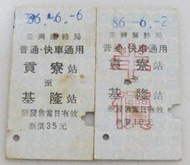 86.-6.-6
臺灣鐵路局
普通·快車通用
貢寮站
至
基隆站
限發售當日有效
票價35元
86.-6.-2
臺灣鐵路局
普通·快車通用
貢寮站
至
基隆站
限發售當日有效
票價18元